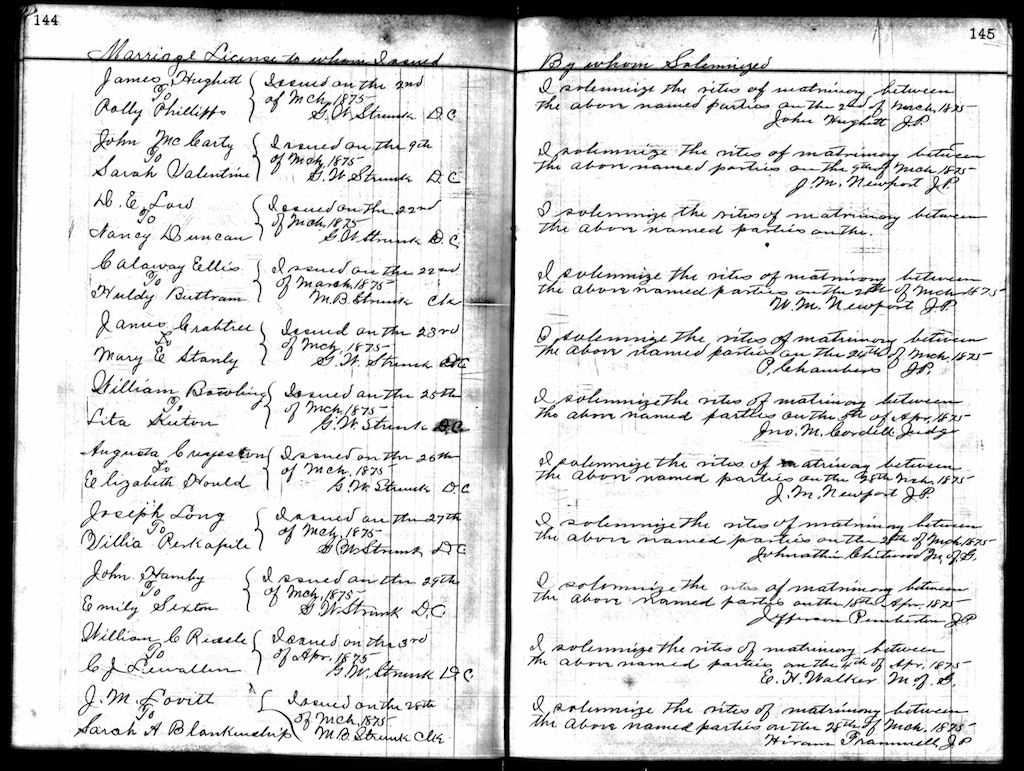 144
Marriage License to whom Issued
James Hughett { Issued on the 2nd
To of Mch, 1875
Polly Phillipps G. W. Strunk D. C
John McCarty { Issued on the 9th
To of Mch, 1875
Sarah Valentine G. W. Strunk D. C
D. E. Low { Issued on the 22nd
To of Mch, 1875
Nancy Duncan G. W. Strunk D. C.
Calaway Ellis { Issued on the 22nd
To of March, 1875
Huldy Buttram M. B. Strunk Clk
James Crabtree { Issued on the 23rd
To of Mch, 1875
Mary E Stanly G. W. Strunk D C
William Bowling { Issued on the 25th
To of Mch, 1875
Lita G. W. Strunk D. C
Augusta { Issued on the 26th
To of Mch, 1875
Elizabeth Hould G. W. Strunk D. C
Joseph Long { Issued on the 27th
To of Mch, 1875
G. W. Strunk D C
John Hamby { Issued on the 29th
To of Mch, 1875
Emily Sexton G W Strunk D. C.
William C { Issued on the 3rd
To of Apr, 1875
C J Lewallen G. W. Strunk D C
J. M. Lovitt { Issued on the 28th
To of Mch, 1875
Sarah A Blankenship M. B Strunk Clk
145
By whom Solemnized
I solemnize the rites of matrimony between
the above named parties on the 2nd of March, 1875
John Hughett J. P.
I solemnize the rites of matrimony between
the above named parties on the 9th of Mch 1875
J. M. Newport J. P.
I solemnize the rites of matrimony between
the above named parties on the.
I solemnize the rites of matrimony between
the above named parties on the of Mch 1875
W. M. Newport J P.
I solemnize the rites of matrimony between
the above named parties on the 24th of Mch, 1875
P. Chambers J P.
I solemnize the rites of matrimony between
the above named parties on the of Apr, 1875
Jno. M. Cordell Judge
I solemnize the rites of matrimony between
the above named parties on the 28th Mch, 1875
J. M. Newport J. P.
I solemnize the rites of matrimony between
the above named parties on the 28th of Mch, 1875
Johnathin Chitwood M. of G.
I solemnize the rites of matrimony between
the above named parties on the 18th Apr, 1875
Jefferson Pemberton J P
I solemnize the rites of matrimony between
the above named parties on the 4th of Apr, 1875
E. H. Walker M. of G.
I solemnize the rites of matrimony between
the above named parties on the 28th of Mch, 1875
Hiram Trammell J. P